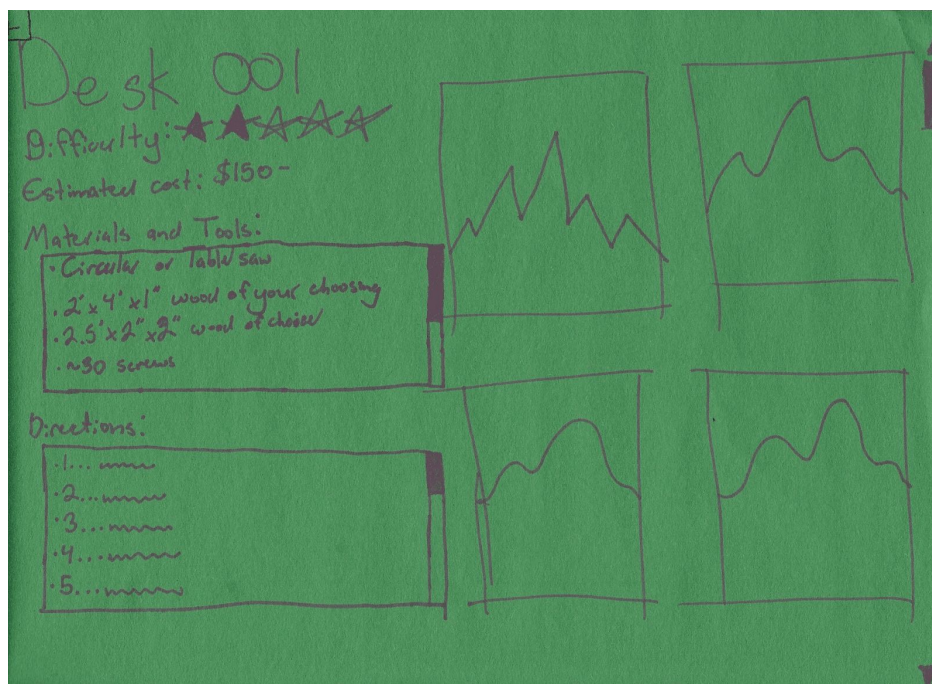 Desk 001
Difficulty:
Estimated cost: $150-
Materials and Tools:
· Circular or Table saw
· 2'x4'x1" wood of your choosing
· 2.5'x2"x2" wood of choose
· ~30 screws
Directions:
· 1...
· 2...
· 3...
· 4...
· 5...